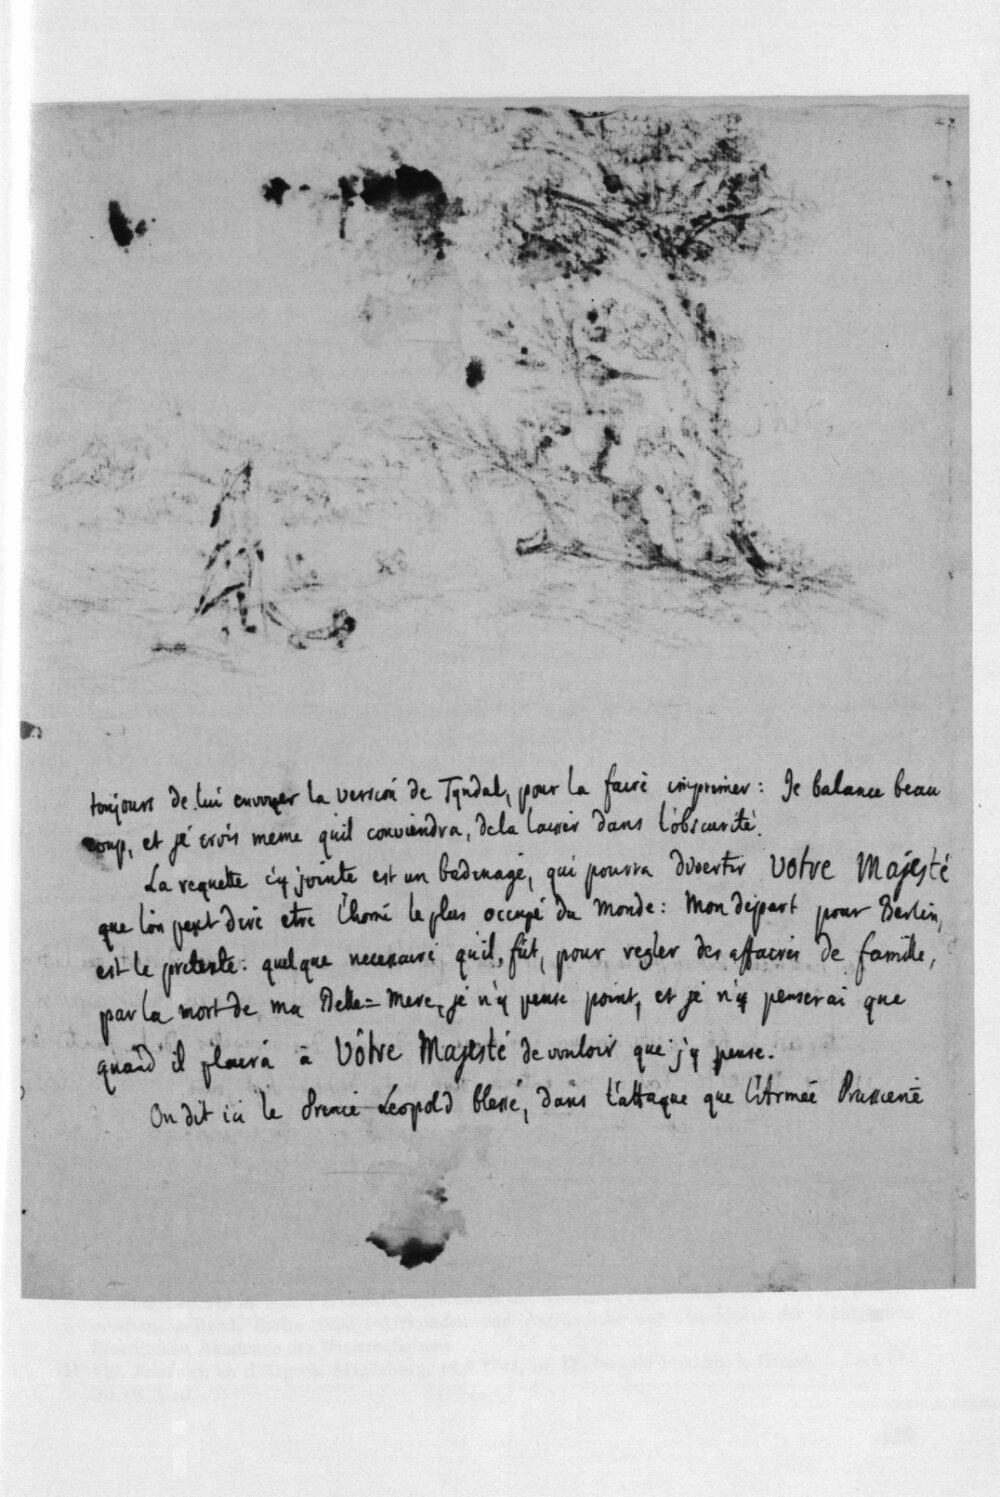 toujours de lui envoyer la version de Tyndal, pour la faire imprimer: Je balance beau
coup, et je crois meme qu'il conviendra, de la laisser dans l'obscurité.
La requette c'y jointe est un badinage, qui pourra divertir Votre Majesté
que l'on peut dire etre l'homē le plus occupé du Monde: Mon depart pour Berlin,
est le pretexte: quelque necessaire qu'il, fût, pour regler des affaires de famille,
par la mort de ma Belle=Mere, je n'y pense point, et je n'y penserai que
quand il plaira à Vôtre Majesté de vouloir que j'y pense.
On dit ici le Prence Leopold blessé, dans l'attaque que l'Armée Prussiene